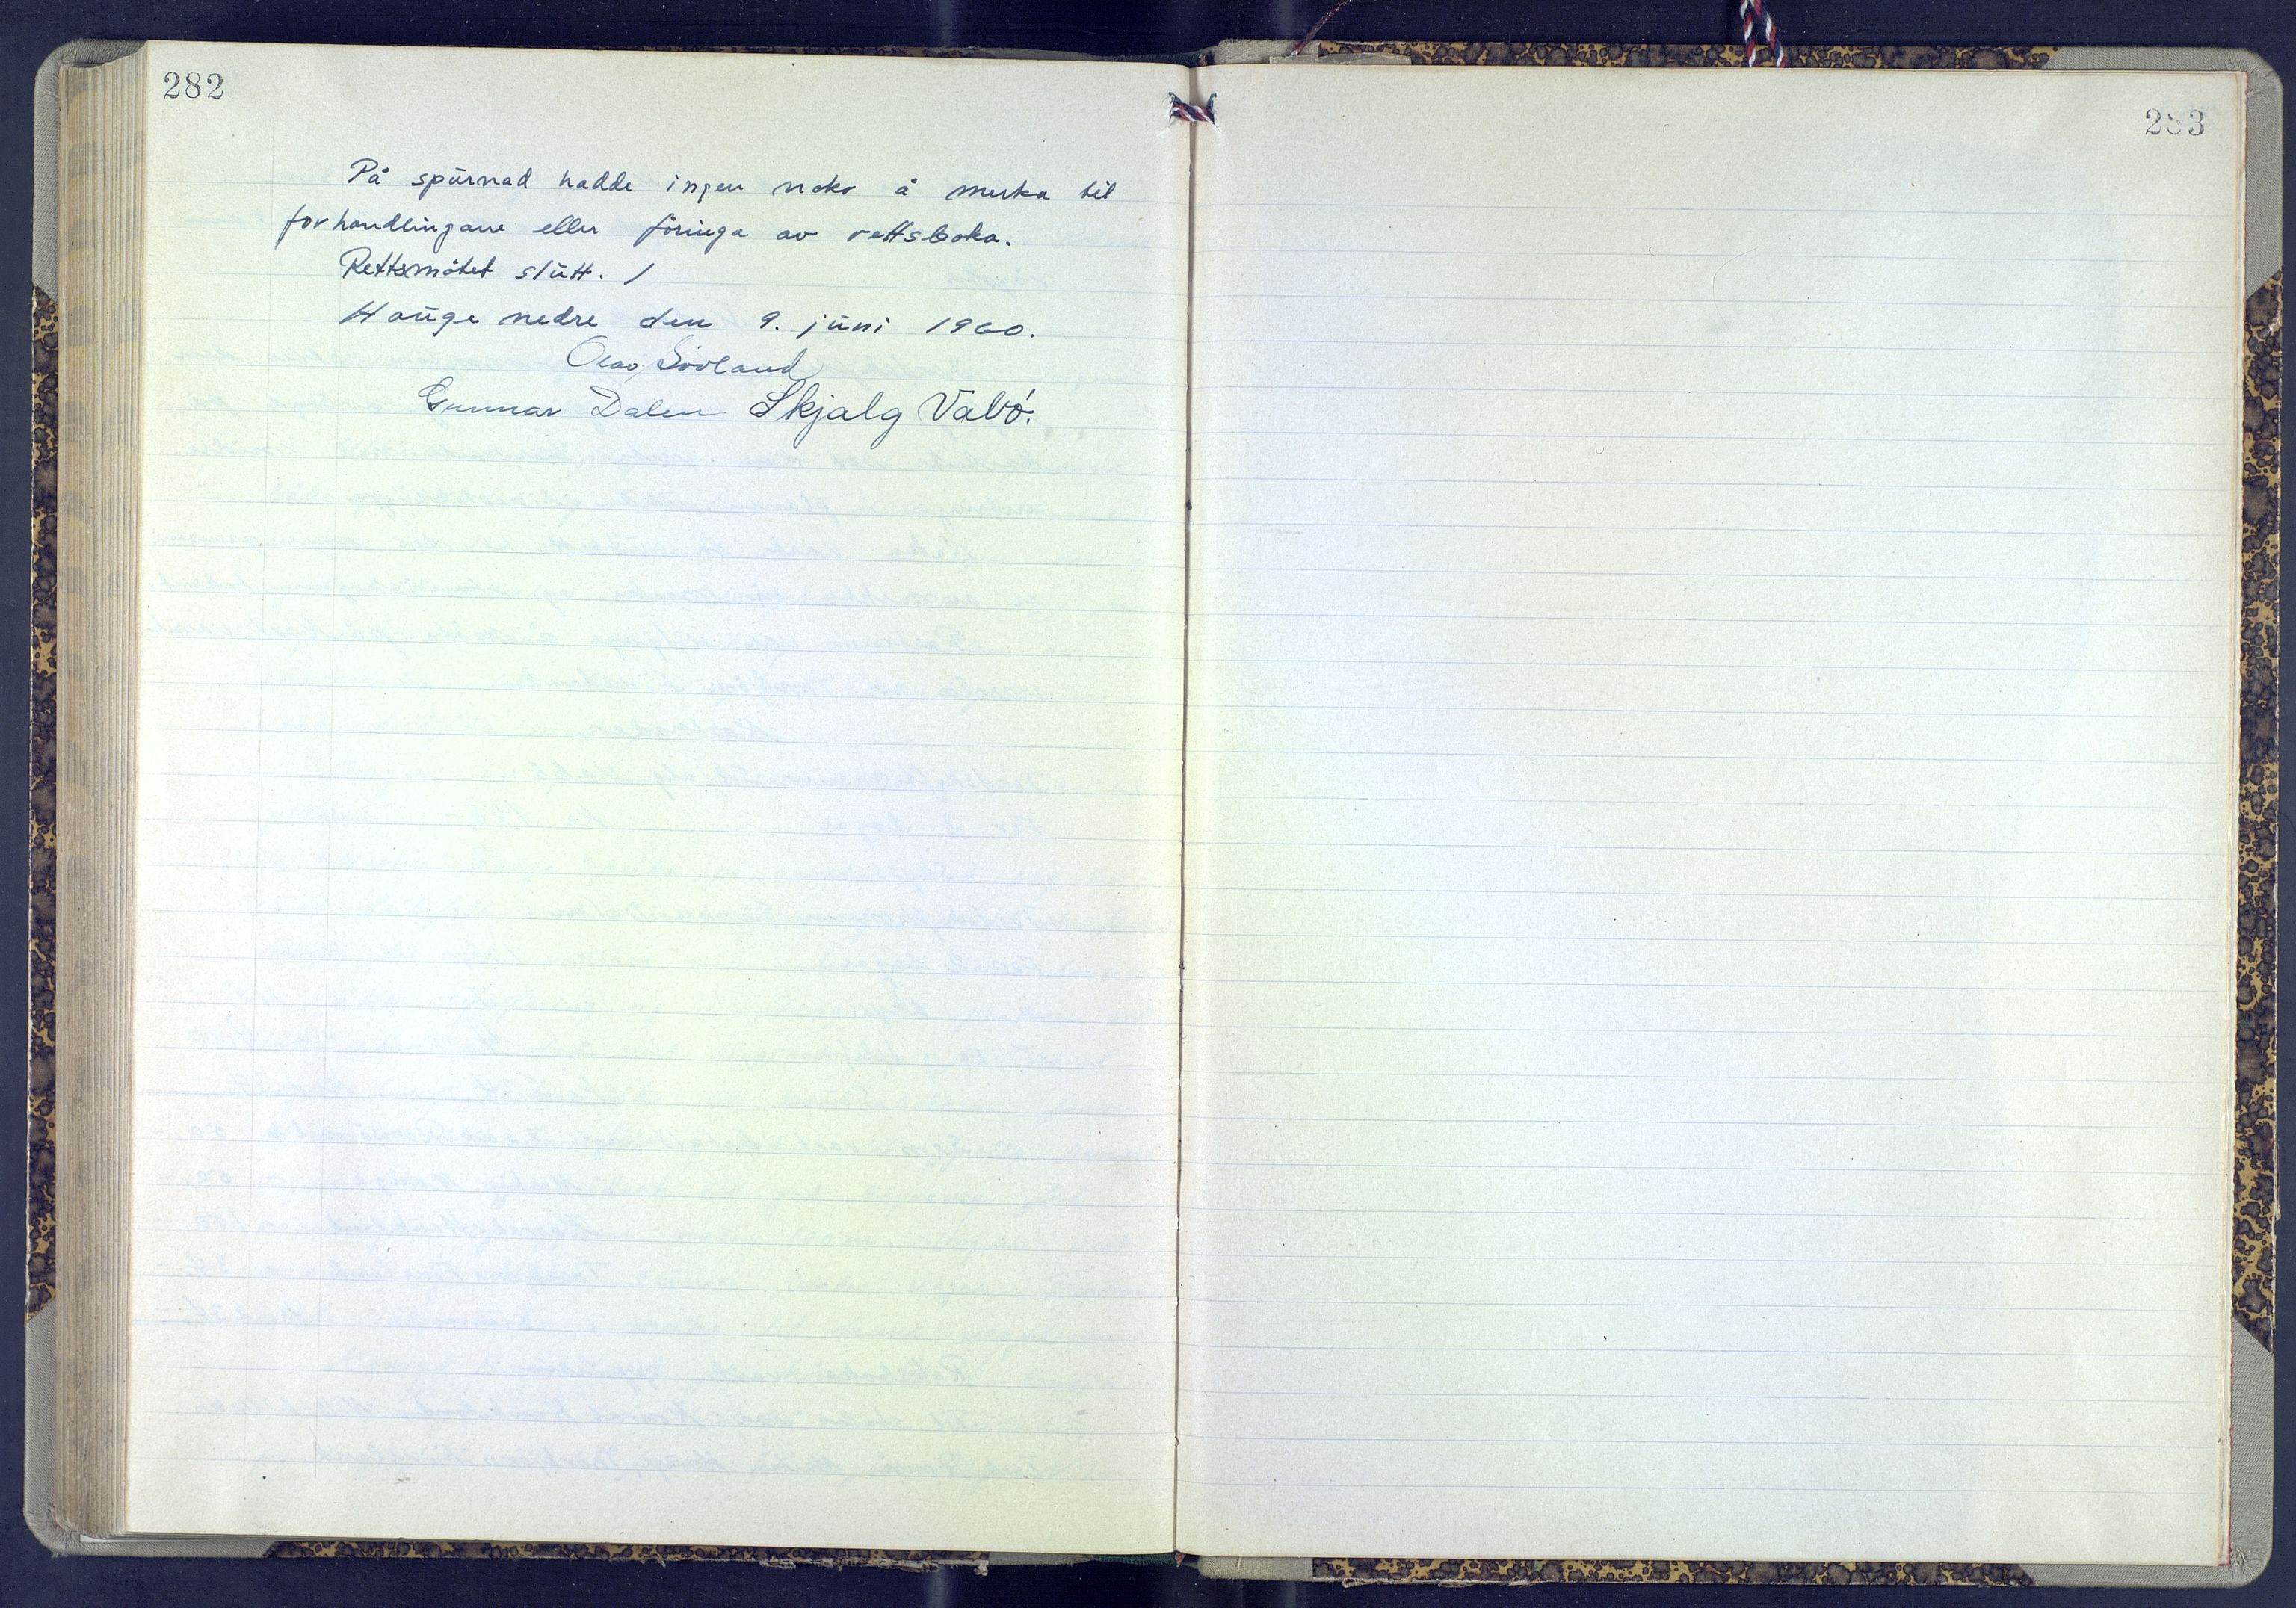 282
På spürnad hadde ingen noko å merka til
forhandlingane eller föringa av rettsboka.
Rettsmötet slütt. /
Haüge nedre den 9. jüni 1960.
Olav Sövland
Gunnar Dalen Skjalg Vabö.
283